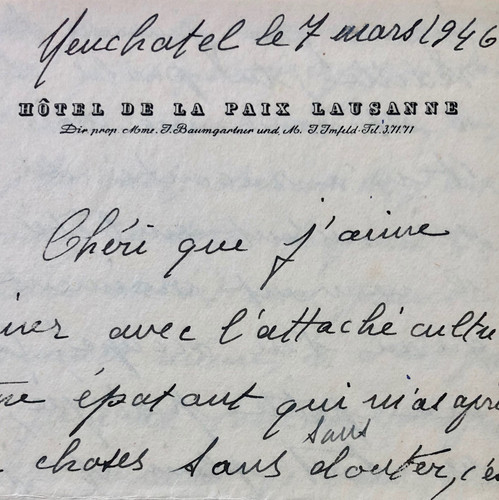 Neuchatel le 7 mars 1946
HÔTEL DE LA PAIX LAUSANNE
Dir. prop. Mme. J. Baumgartner und. M. J. Imfeld - Tél. 3.71.71
Chéri que j'aime
avec l'attaché cultu
épatant qui m'as
sans
choses sans douter, c'es